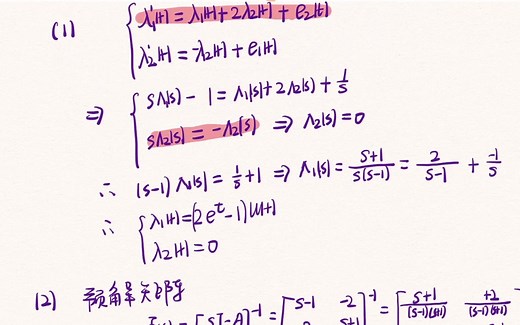 (1) { λ₁'(t) = λ₁(t) + 2λ₂(t) + e₂(t)
λ₂'(t) = -λ₂(t) + e₁(t)
⇒ { SΛ₁(s) - 1 = Λ₁(s) + 2Λ₂(s) + 1/s
SΛ₂(s) = -Λ₂(s) ⇒ Λ₂(s) = 0
∴ (s-1) Λ₁(s) = 1/s + 1 ⇒ Λ₁(s) = (s+1)/(s(s-1)) = 2/(s-1) + (-1)/s
∴ { λ₁(t) = (2e^t - 1) u(t)
λ₂(t) = 0
(2) 预解矩阵
= [SI-A]⁻¹ = [s-1 -2
s+1]⁻¹ = [(s+1)/((s-1)(s+1)) +2/((s-1)(s+1))